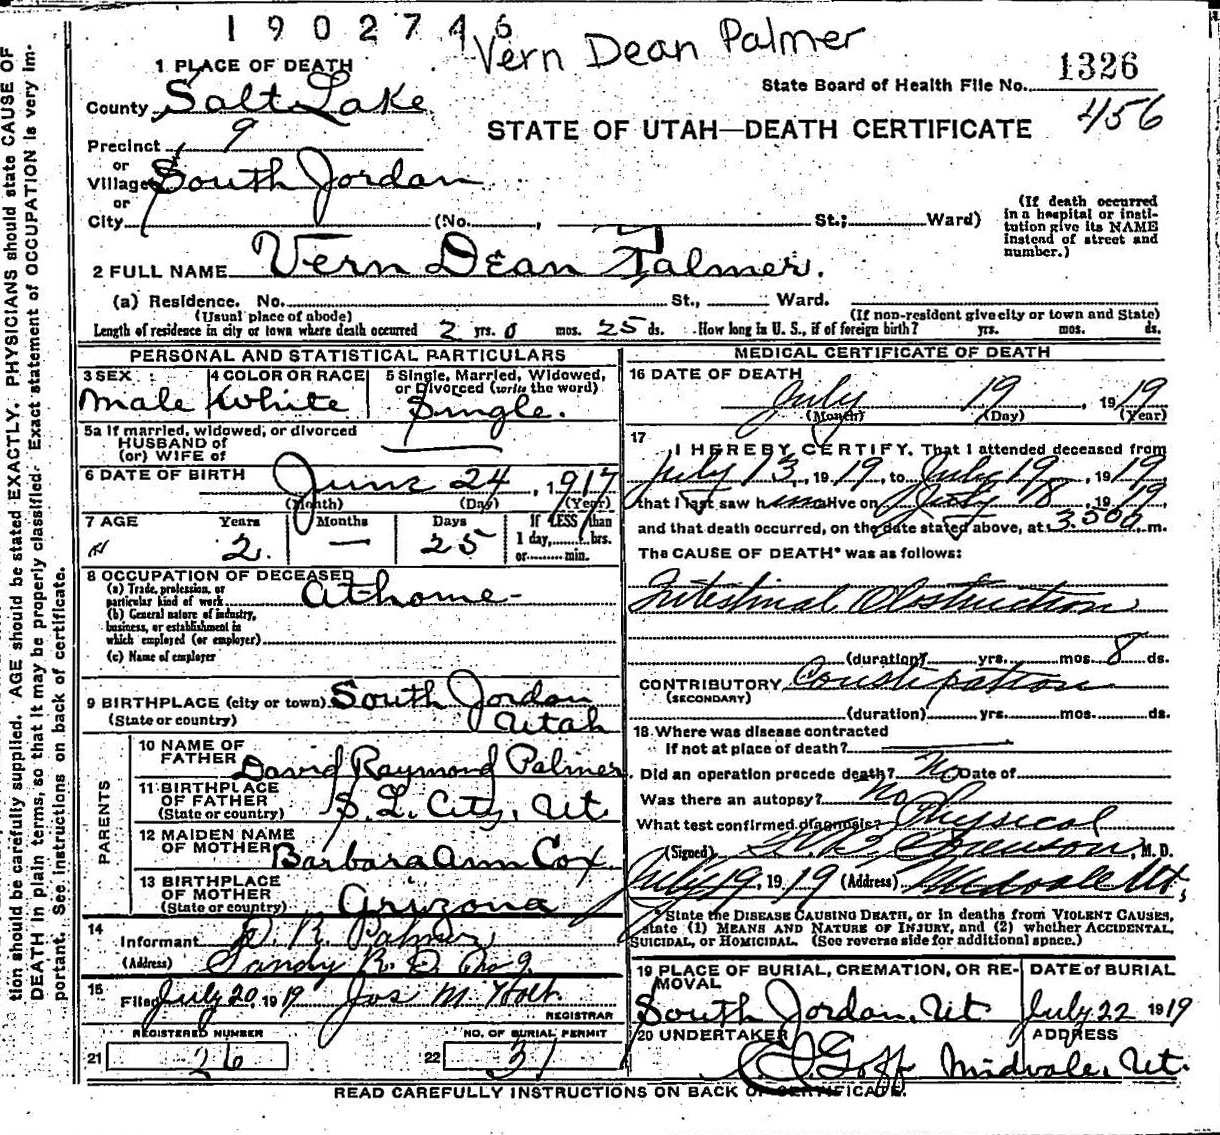 1902746
Vern Dean Palmer
1 PLACE OF DEATH
State Board of Health File No. 1326
County Salt Lake
456
STATE OF UTAH—DEATH CERTIFICATE
Precinct 9
or
Village South Jordan
or
City (No. , St.; Ward)
(If death occurred in a hospital or institution give its NAME instead of street and number.)
2 FULL NAME Vern Dean Palmer.
(a) Residence. No. St., Ward.
(Usual place of abode) (If non-resident give city or town and State)
Length of residence in city or town where death occurred 2 yrs. 0 mos. 25 ds. How long in U. S., if of foreign birth? yrs. mos. ds.
PERSONAL AND STATISTICAL PARTICULARS
3 SEX 4 COLOR OR RACE 5 Single, Married, Widowed, or Divorced (write the word)
Male White Single.
5a If married, widowed, or divorced
HUSBAND of
(or) WIFE of
6 DATE OF BIRTH June 24, 1917
(Month) (Day) (Year)
7 AGE Years Months Days If LESS than
1 day, hrs.
or min.
2. — 25
8 OCCUPATION OF DECEASED
(a) Trade, profession, or particular kind of work At home-
(b) General nature of industry, business, or establishment in which employed (or employer)
(c) Name of employer
9 BIRTHPLACE (city or town) South Jordan
(State or country) Utah
PARENTS
10 NAME OF FATHER David Raymond Palmer
11 BIRTHPLACE OF FATHER (State or country) S. L. City, Ut.
12 MAIDEN NAME OF MOTHER Barbara Ann Cox.
13 BIRTHPLACE OF MOTHER (State or country) Arizona
14
Informant D. R. Palmer
(Address) Sandy R. D. No 1.
15
Filed July 20, 1919 Jos M Holt
REGISTRAR
REGISTERED NUMBER NO. OF BURIAL PERMIT
21 26 22 31
MEDICAL CERTIFICATE OF DEATH
16 DATE OF DEATH
July 19, 1919
(Month) (Day) (Year)
17
I HEREBY CERTIFY, That I attended deceased from
July 13, 1919, to July 19, 1919
that I last saw him alive on July 18, 1919,
and that death occurred, on the date stated above, at m.
The CAUSE OF DEATH* was as follows:
Intestinal Obstruction
(duration) yrs. mos. 8 ds.
CONTRIBUTORY Constipation
(SECONDARY)
(duration) yrs. mos. ds.
18 Where was disease contracted
If not at place of death?
Did an operation precede death? No Date of
Was there an autopsy? No
What test confirmed diagnosis? Physical
(Signed) Sorenson, M. D.
July 19, 1919 (Address) Midvale Ut.
*State the DISEASE CAUSING DEATH, or in deaths from VIOLENT CAUSES,
state (1) MEANS AND NATURE OF INJURY, and (2) whether ACCIDENTAL,
SUICIDAL, or HOMICIDAL. (See reverse side for additional space.)
19 PLACE OF BURIAL, CREMATION, OR REMOVAL DATE of BURIAL
South Jordan, Ut July 22 1919
20 UNDERTAKER ADDRESS
Goff Midvale, Ut.
READ CAREFULLY INSTRUCTIONS ON BACK OF CERTIFICATE.
tion should be carefully supplied. AGE should be stated EXACTLY. PHYSICIANS should state CAUSE OF
DEATH in plain terms, so that it may be properly classified. Exact statement of OCCUPATION is very im-
portant. See instructions on back of certificate.